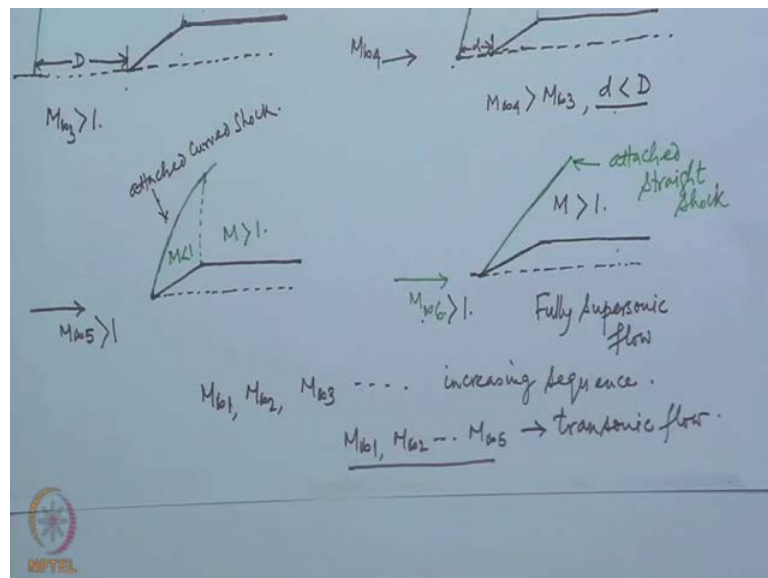 D
M∞3 > 1.
M∞4
d
M∞4 > M∞3, d < D
attached curved shock.
M<1
M > 1.
M∞5 > 1
attached
straight
shock
M > 1.
M∞6 > 1.
Fully supersonic
flow
M∞1, M∞2, M∞3 ---- increasing sequence.
M∞1, M∞2 --- M∞5 → transonic flow.
NPTEL